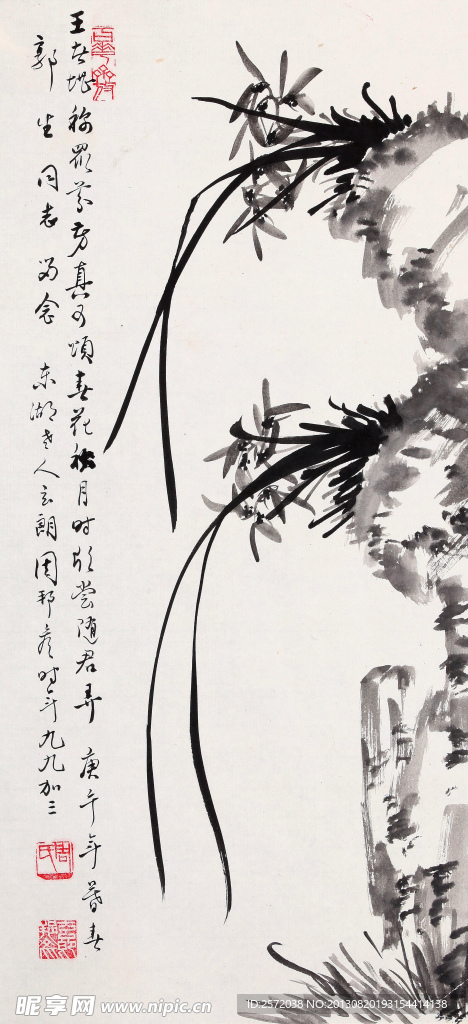 王者堪称眾芬芳真可頌春花秋月时欣尝随君弄 庚午年暮春
郭生同志留念 东湖老人玄朗周邦彦时年九九加三
昵享网 www.nipic.cn
ID:2572038 NO:20130820193154414138